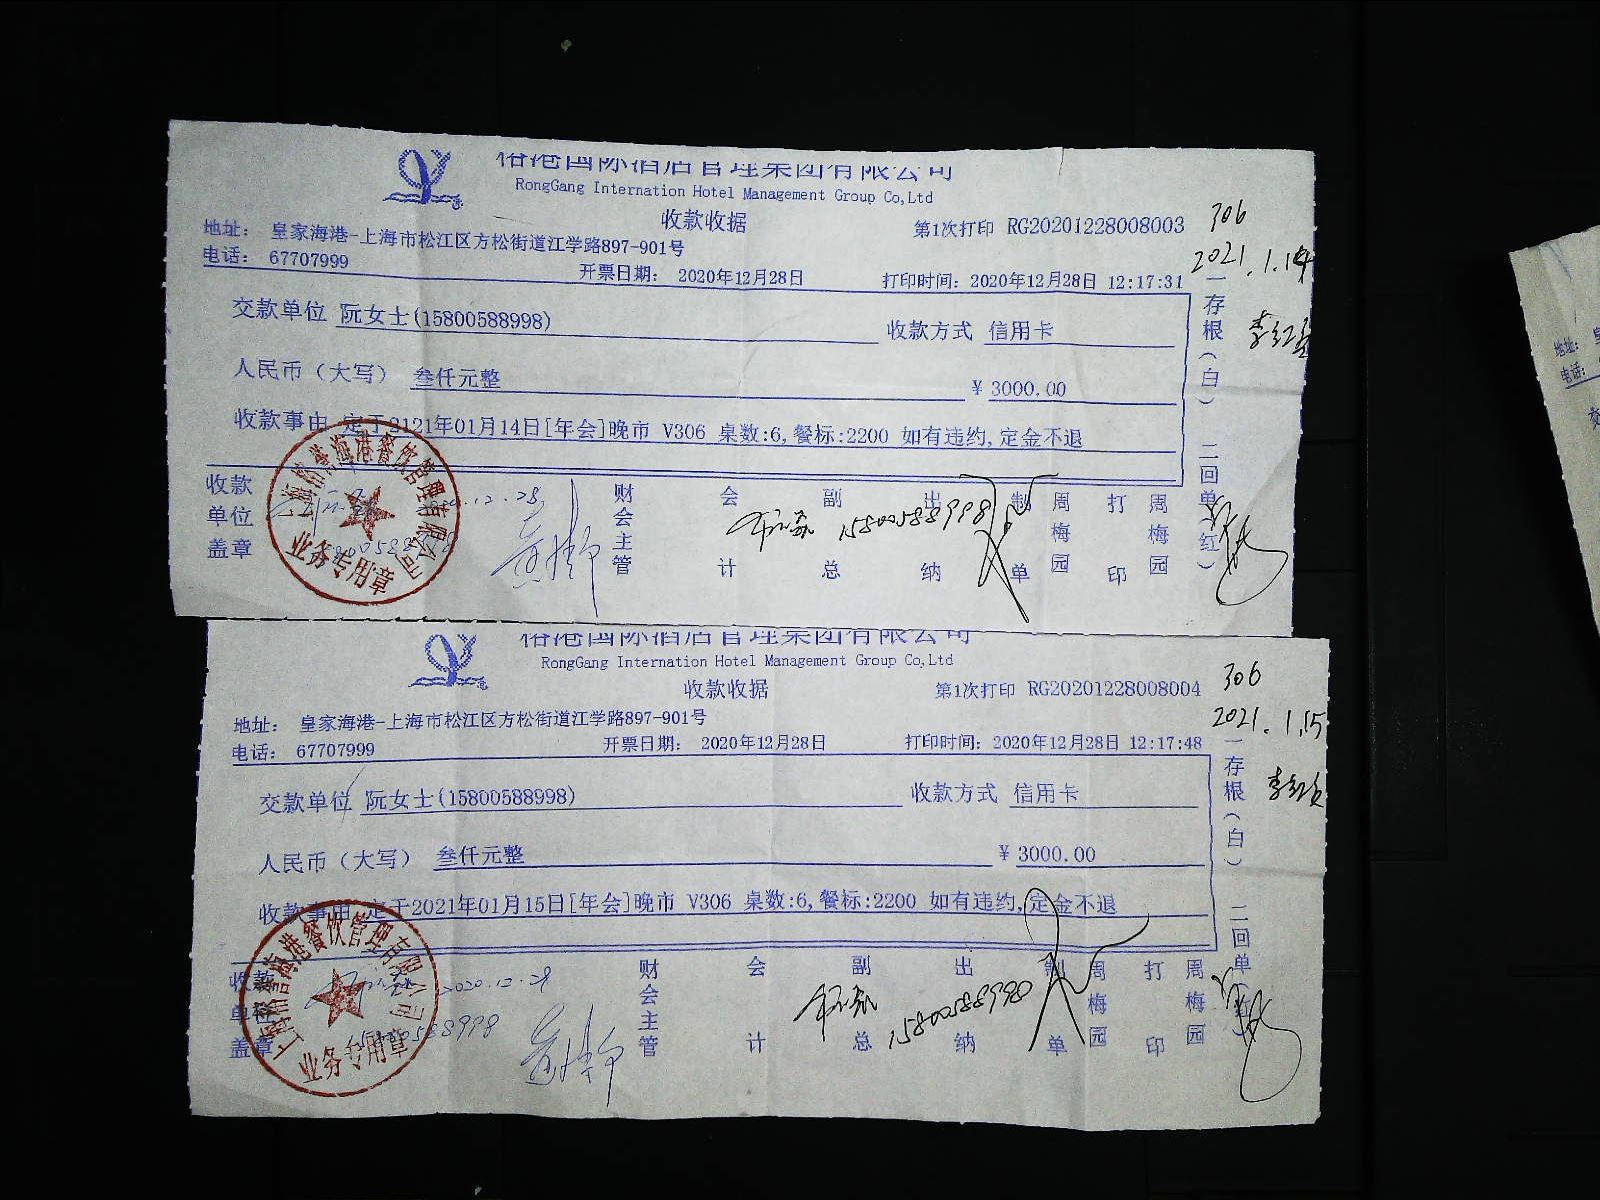 裕港国际酒店管理集团有限公司
RongGang Internation Hotel Management Group Co,Ltd
收款收据
第1次打印 RG20201228008003
306
地址： 皇家海港-上海市松江区方松街道江学路897-901号
2021.1.14
电话： 67707999
开票日期： 2020年12月28日
打印时间：2020年12月28日 12:17:31
交款单位 阮女士(15800588998)
收款方式 信用卡
人民币（大写） 叁仟元整
¥ 3000.00
收款事由 定于2121年01月14日[年会]晚市 V306 桌数:6,餐标:2200 如有违约,定金不退
一存根(白) 二回单(红)
收款单位盖章
12.28
财会主管
会计
副总
15800588998
出纳
制单
周梅园
打印
周梅园
业务专用章
裕港国际酒店管理集团有限公司
RongGang Internation Hotel Management Group Co,Ltd
收款收据
第1次打印 RG20201228008004
306
地址： 皇家海港-上海市松江区方松街道江学路897-901号
2021.1.15
电话： 67707999
开票日期： 2020年12月28日
打印时间：2020年12月28日 12:17:48
交款单位 阮女士(15800588998)
收款方式 信用卡
人民币（大写） 叁仟元整
¥ 3000.00
收款事由 定于2021年01月15日[年会]晚市 V306 桌数:6,餐标:2200 如有违约,定金不退
一存根(白) 二回单(红)
收款单位盖章
2020.12.28
财会主管
会计
副总
15800588998
出纳
制单
周梅园
打印
周梅园
业务专用章
地址：
电话：